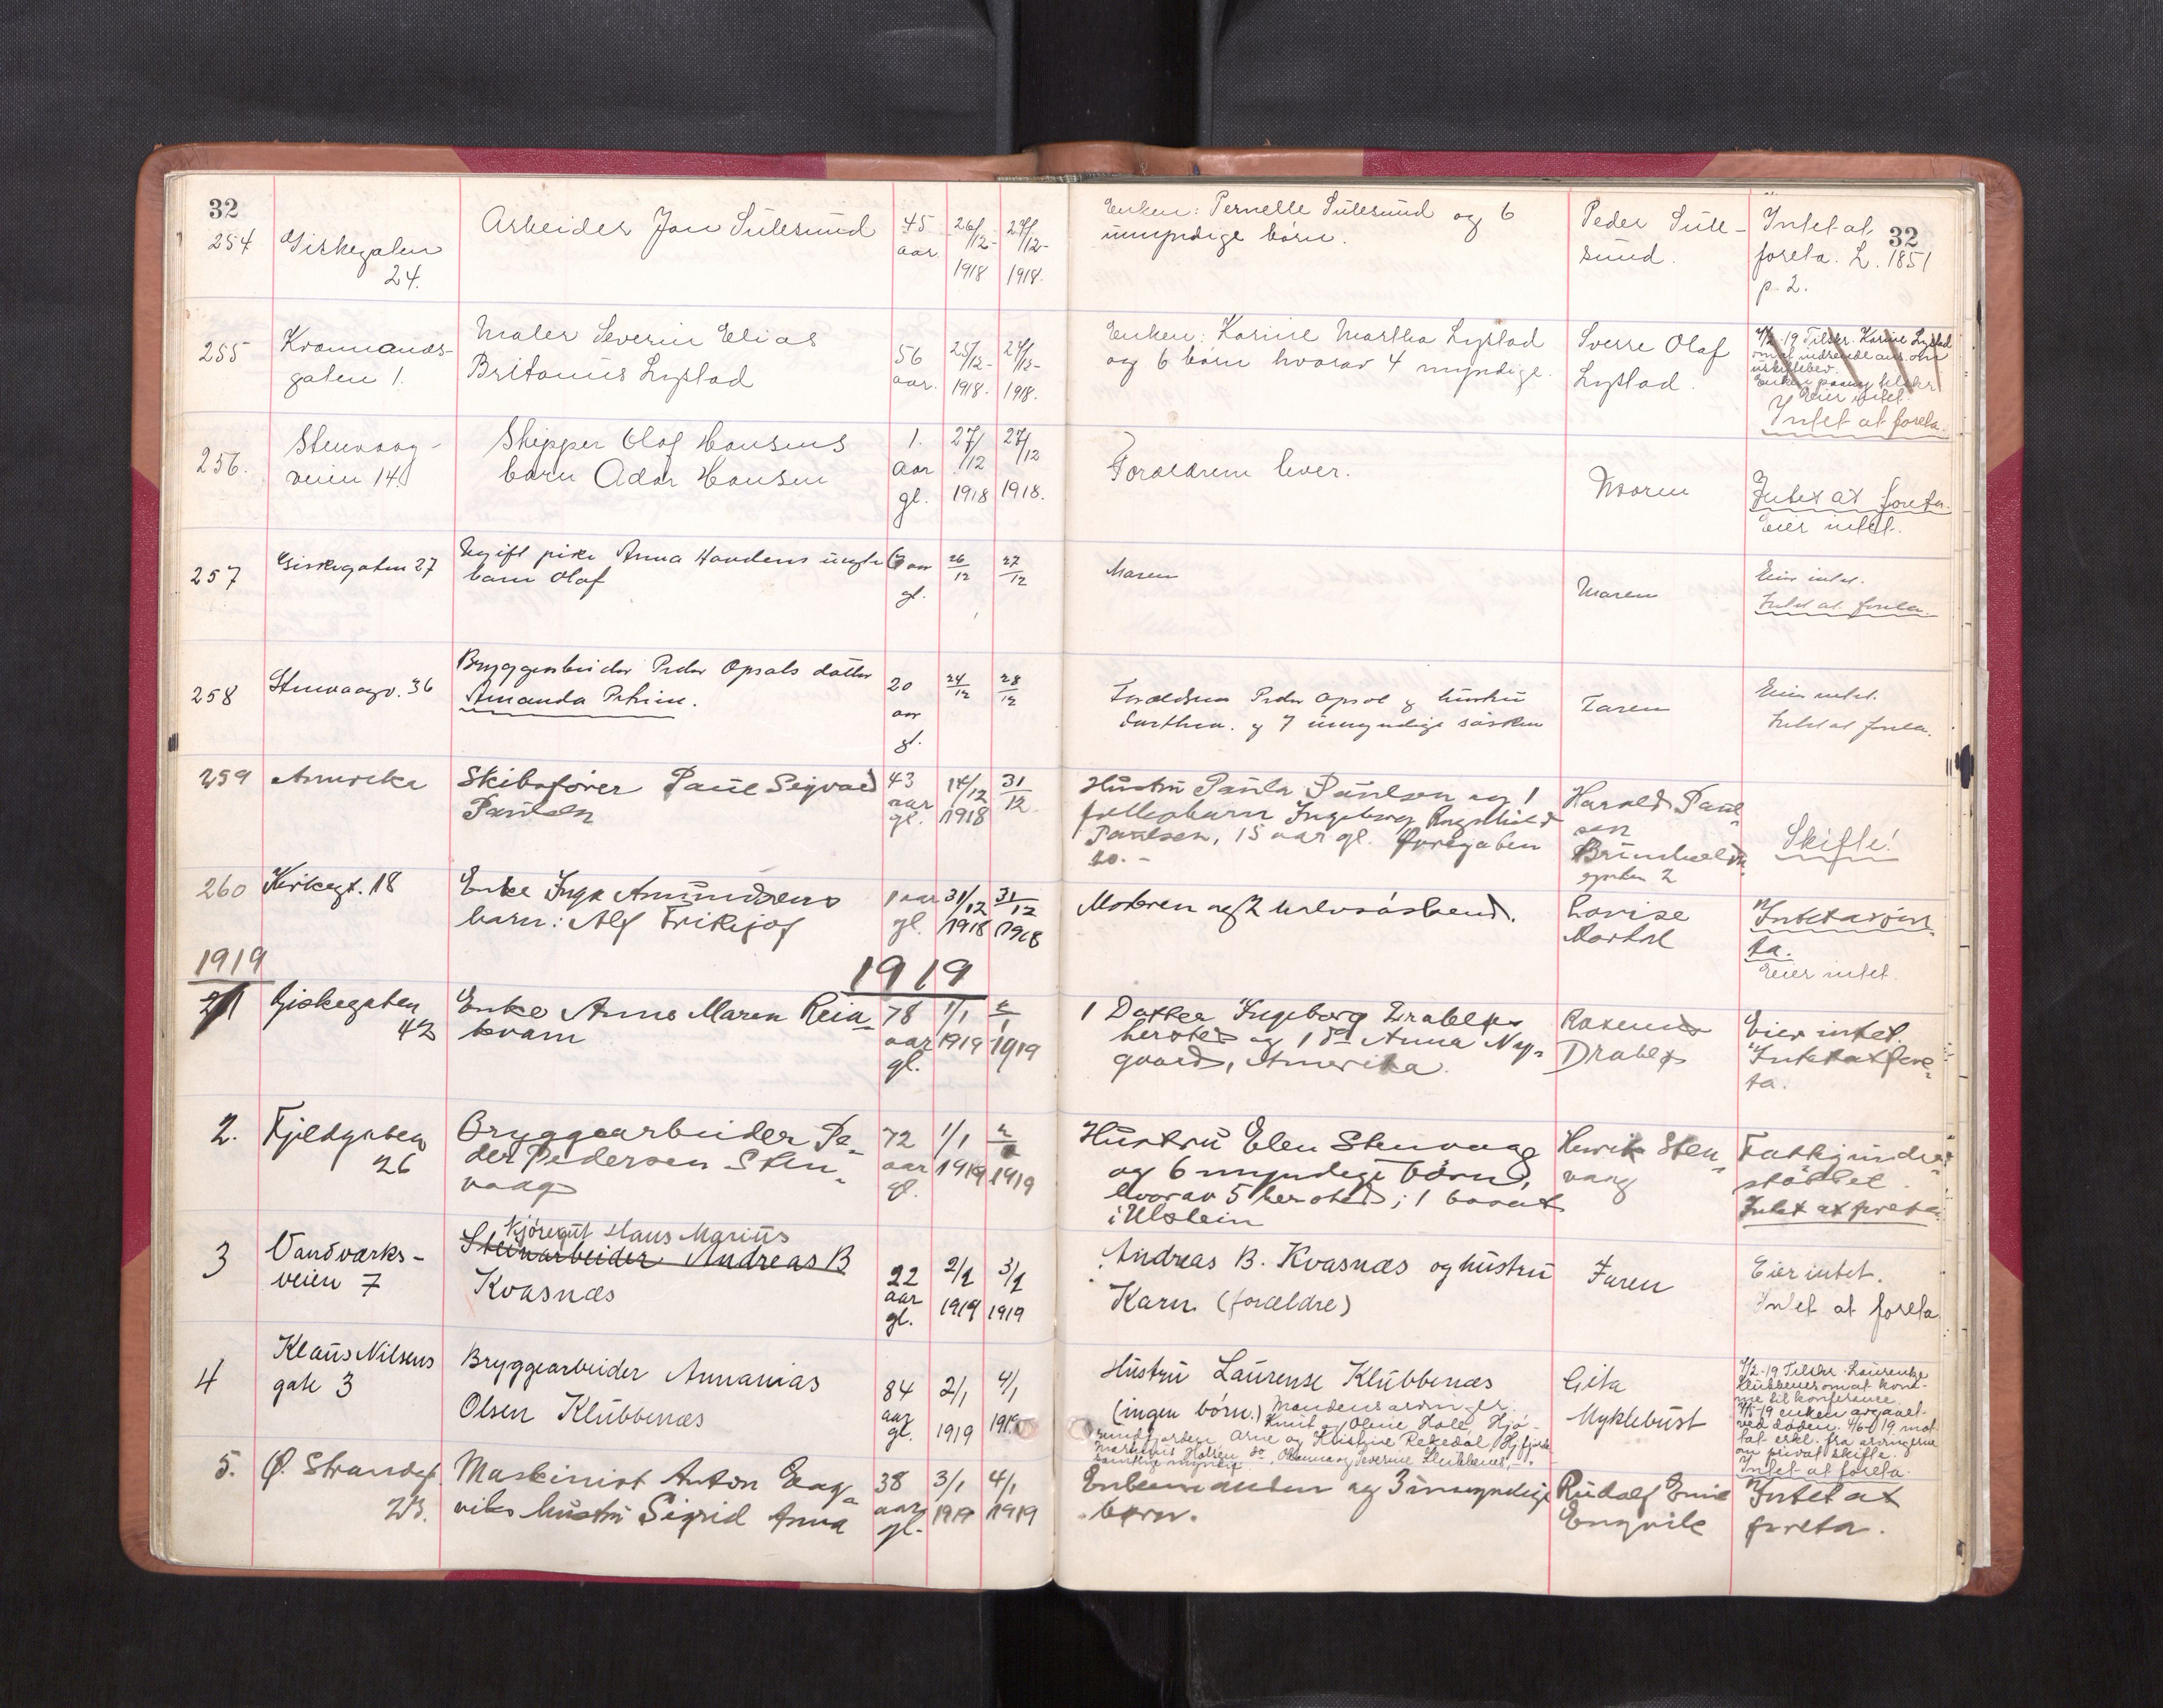 32
254 Giskegaten
24.
Arbeider Jon Sulesund
45
aar.
26/12-
1918
27/12-
1918.
Enken: Pernelle Sulesund og 6
umyndige børn.
Peder Sule-
sund.
Intet at
foreta. L. 1851
p. 2.
32
255 Kromands-
gaten 1.
Maler Severin Elias
Britanus Lystad
56
aar.
25/12-
1918.
27/12-
1918.
Enken: Karine Martha Lystad
og 6 børn hvorav 4 myndige.
Sverre Olaf
Lystad.
4/2-19 Tilskr. Karine Lystad
om at indsende ans. om
uskiftebev.
Eier intet.
Intet at foreta.
256. Stenvaag-
veien 14.
Skipper Olaf Hansens
barn Odar Hansen
1.
aar
gl.
27/12
1918
27/12
1918.
Forældrene lever.
Moren
Intet at foreta.
Eier intet.
257 Giskegaten 27
Ugift pike Anna Haudens uegte
barn Olaf
aar
gl.
26/12
27/12
Moren
Moren
Eier intet.
Intet at foreta.
258 Stenvaagv. 36
Bryggearbeider Peder Opsals datter
Amanda Petrine.
20
aar
gl.
24/12
28/12
Forældrene Peder Opsal og hustru
Dorthea. og 7 umyndige søsken
Faren
Eier intet.
Intet at foreta.
259 Amerika
Skibsfører Paul Sigvald
Paulsen
43
aar
gl.
14/12
1918
31/12
Hustru Paula Paulsen og 1
fællesbarn Ingeborg Ragnhild
Paulsen, 15 aar gl.
Harald Paul-
sen
Skifte!
260 Kirkegt. 18
Enke Inga Amundsens
barn: Alf Frithjof
1 aar
gl.
31/12
1918
31/12
1918
Moderen og 2 halvsøskend.
Lovise
Intet at fore-
ta.
Eier intet.
1919
1919
1 Giskegaten
42
Enke Anne Maren Reia-
kvam
78
aar
gl.
1/1
1919
2/1
1919
1 Datter Ingeborg Drabløs
hersteds og 1 do Anna Ny-
gaard, Amerika.
Rasmus
Drabløs
Eier intet.
Intet at fore-
ta.
2. Fjeldgaten
26
Bryggearbeider Pe-
der Pedersen Sten-
vaag
72
aar
gl.
1/1
1919
2
1919
Hustru Elen Stenvaag
og 6 myndige børn,
hvorav 5 hersteds; 1 bosat
i Ulstein
Henrik Sten-
vaag
Fattigunder-
støttet.
Intet at foreta.
3 Vandværks-
veien 7
Kjøregut Hans Marius
Steinarbeider Andreas B
Kvasnæs
22
aar
gl.
2/1
1919
3/1
1919
Andreas B. Kvasnæs og hustru
Karn. (forældre)
Faren
Eier intet.
Intet at foreta
4 Klaus Nilsens
gate 3
Bryggearbeider Annanias
Olsen Klubbenæs
84
aar
gl.
2/1
1919
4/1
1919
Hustru Laurense Klubbenæs
(ingen børn.) Mandens arvinger.
Knut og Oline Hole, Hjø-
rundfjorden, Arne og Kristine Rekedal, Hj.fjorden
Gita
Myklebust
4/2-19 Tilskr. Laurentse
Klubbenes om at kom-
me til konferance.
enken avgaaet
ved døden. 4/6-19 mot-
tat erkl. fra arvingerne
om privat skifte.
Intet at foreta.
5. Ø. Strandgt.
Maskinist Anton Eng-
viks hustru Sigrid Anna
38
aar
gl.
3/1
1919
4/1
1919
Enkemanden og 3 umyndige
børn.
Rudolf Emil
Engvik
Intet at
foreta.